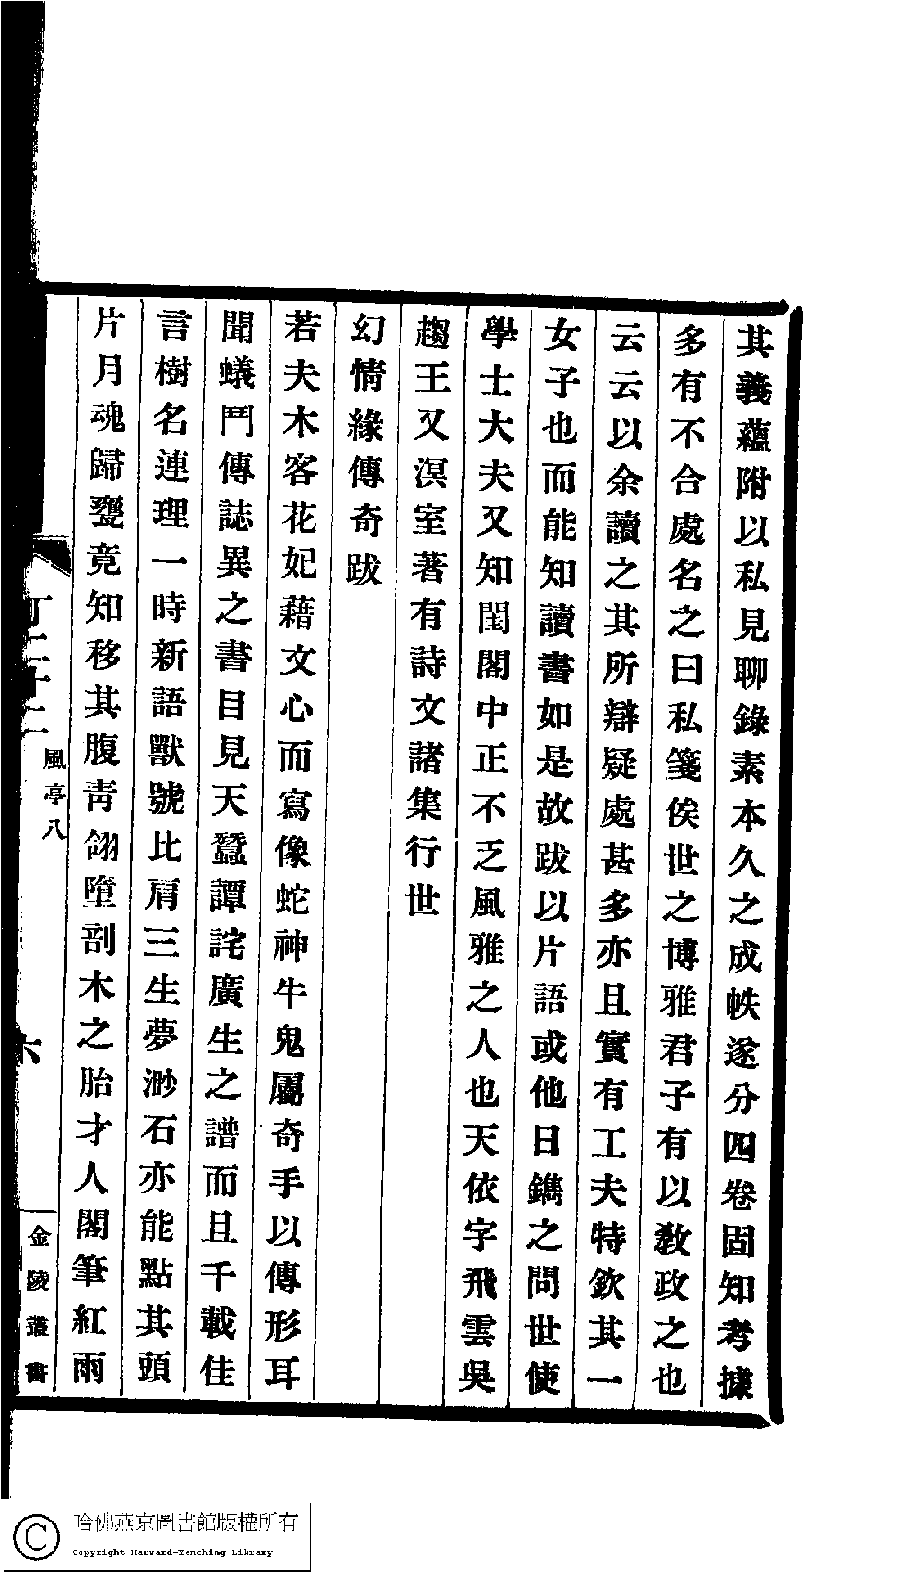 其義蘊附以私見聊錄素本久之成帙遂分四卷固知考據
多有不合處名之曰私箋俟世之博雅君子有以敎政之也
云云以余讀之其所辯疑處甚多亦且實有工夫特欽其一
女子也而能知讀書如是故跋以片語或他日鐫之問世使
學士大夫又知閨閣中正不乏風雅之人也天依字飛雲吳
趨王又溟室著有詩文諸集行世
幻情緣傳奇跋
若夫木客花妃藉文心而寫像蛇神牛鬼屬奇手以傳形耳
聞蟻鬥傳誌異之書目見天蠶譚詫廣生之譜而且千載佳
言樹名連理一時新語獸號比肩三生夢渺石亦能點其頭
片月魂歸甕竟知移其腹靑翎墮剖木之胎才人閣筆紅雨
風亭八
六
金陵叢書
哈佛燕京圖書館版權所有
Copyright Harvard-Yenching Library